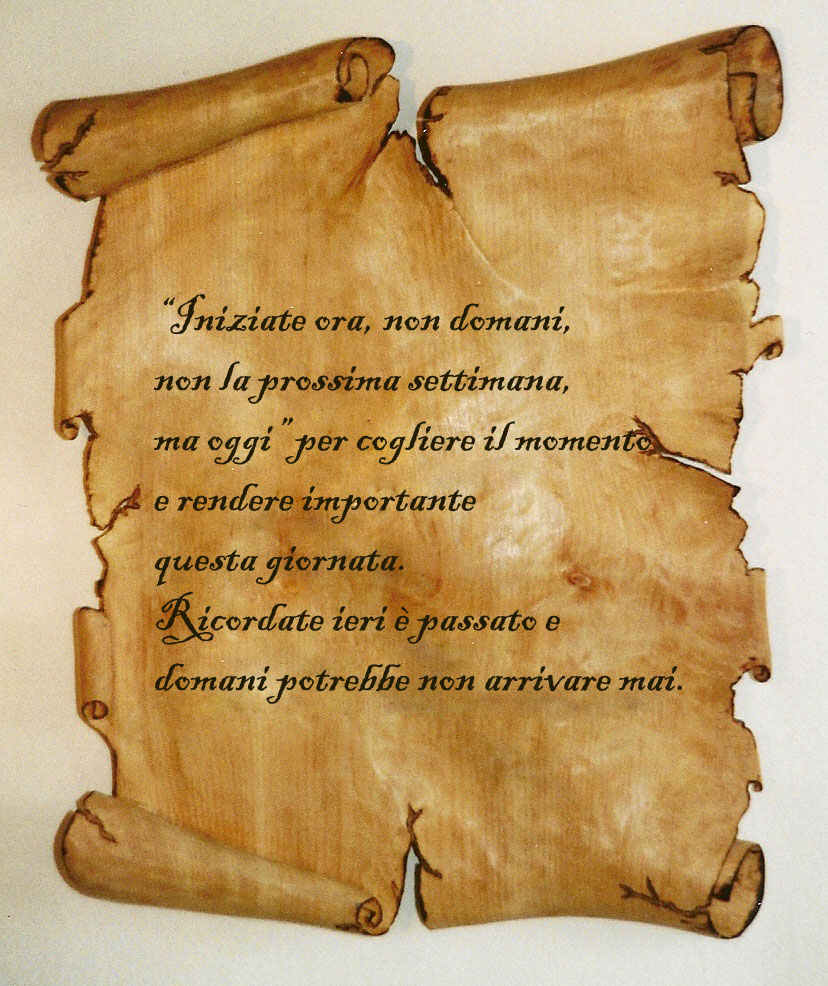 “Iniziate ora, non domani,
non la prossima settimana,
ma oggi” per cogliere il momento
e rendere importante
questa giornata.
Ricordate ieri è passato e
domani potrebbe non arrivare mai.